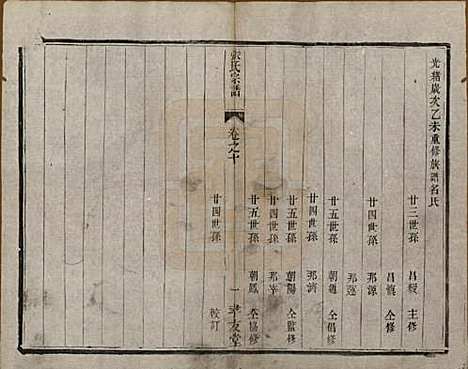 光緒歲次乙未重修族譜名氏
廿三世孫 昌綬 主修
昌慎 仝修
廿四世孫 邦源
邦運
廿五世孫 朝選 仝倡修
廿四世孫 邦濟
廿五世孫 朝陽 仝監修
廿四世孫 邦幸
廿五世孫 朝鳳 仝協修
廿四世孫 校訂
張氏宗譜
卷之十
一 孝友堂